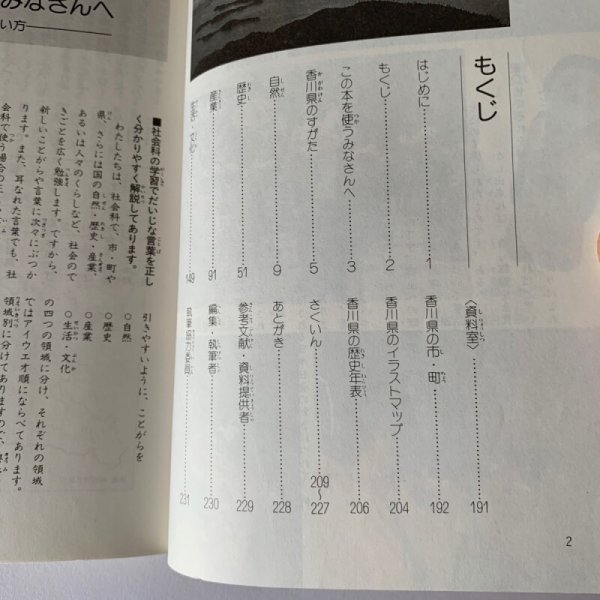 もくじ
はじめに……1
もくじ……2
この本を使うみなさんへ……3
香川県のすがた……5
自然……9
歴史……51
産業……91
生活・文化……149
〈資料室〉……191
香川県の市・町……192
香川県のイラストマップ……204
香川県の歴史年表……206
さくいん……209〜227
あとがき……228
参考文献・資料提供者……229
編集・執筆者……230
執筆協力委員……231
2
みなさんへ
い方
■社会科の学習でだいじな言葉を正し
く分かりやすく解説してあります。
わたしたちは、社会科で、市・町や
県、さらには国の自然・歴史・産業、
あるいは人々のくらしなど、社会ので
きごとを広く勉強します。ですから、
新しいことがらや言葉に次々にぶつか
ります。また、耳なれた言葉でも、社
会科で使う場合の正
引きやすいように、ことがらを
○自然
○歴史
○産業
○生活・文化
の四つの領域に分け、それぞれの領域
ではアイウエオ順にならべてあります。
領域別に分けてありますので